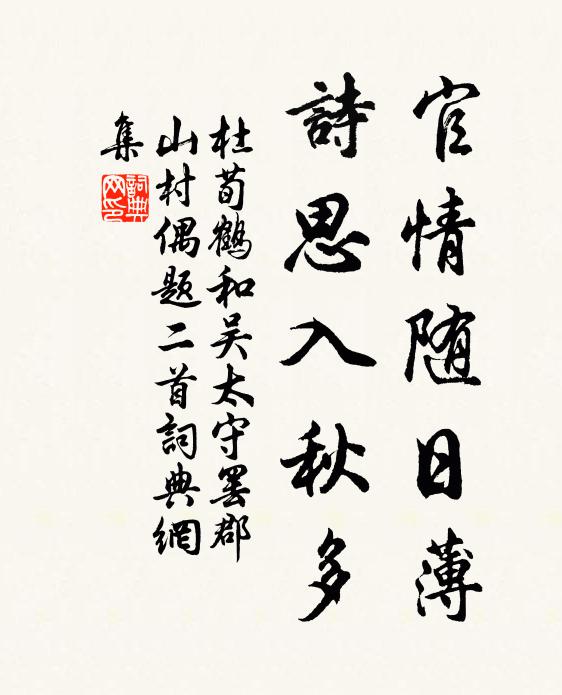 官情随日薄
詩思入秋多
杜荀鶴和吴太守罢郡
山村偶题二首詞典網
集
詞典
网印